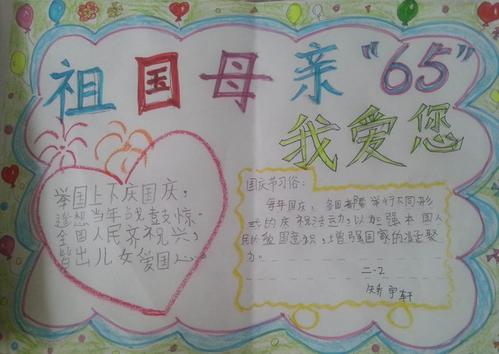 祖国母亲“65”
我爱您
举国上下庆国庆，
追想当年
全国人民齐祝兴，
皆出儿女爱国心。
国庆节习俗：
每年国庆，各国都要举行不同形
式的庆祝活动，以加强本国人
民的爱国意识，增强国家的凝聚
力。
二·2
宇轩